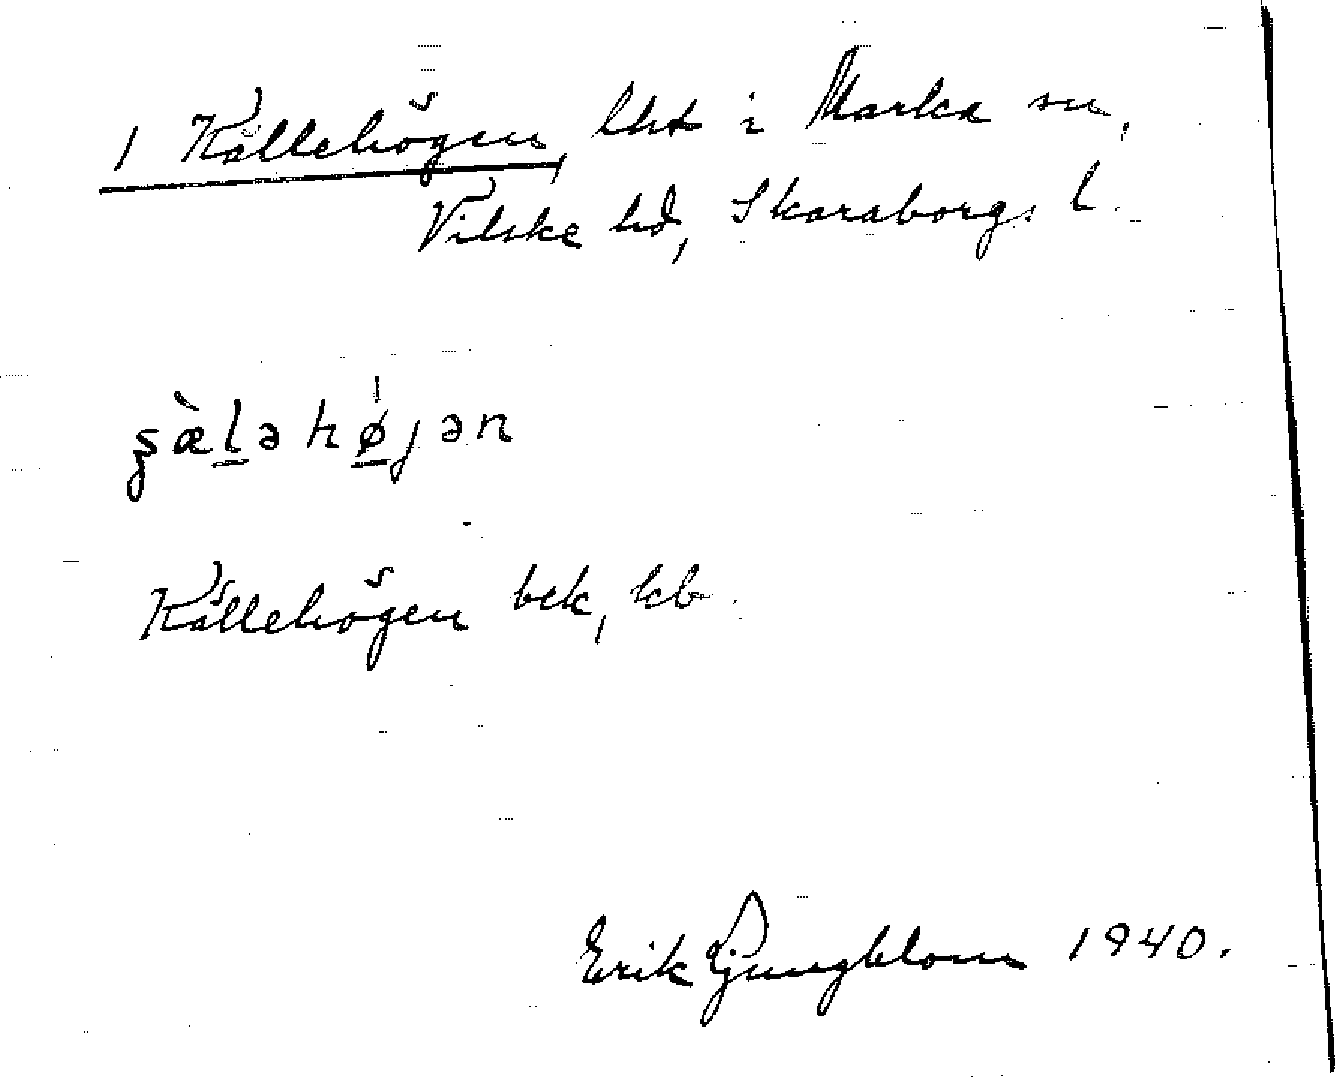 1 Källehögen, lht i Marka sn,
Vilske hd, Skaraborgs l.
ʂæ̀l̠əhø̠jən
Källehögen bek, kb.
Erik Ljungblom 1940.